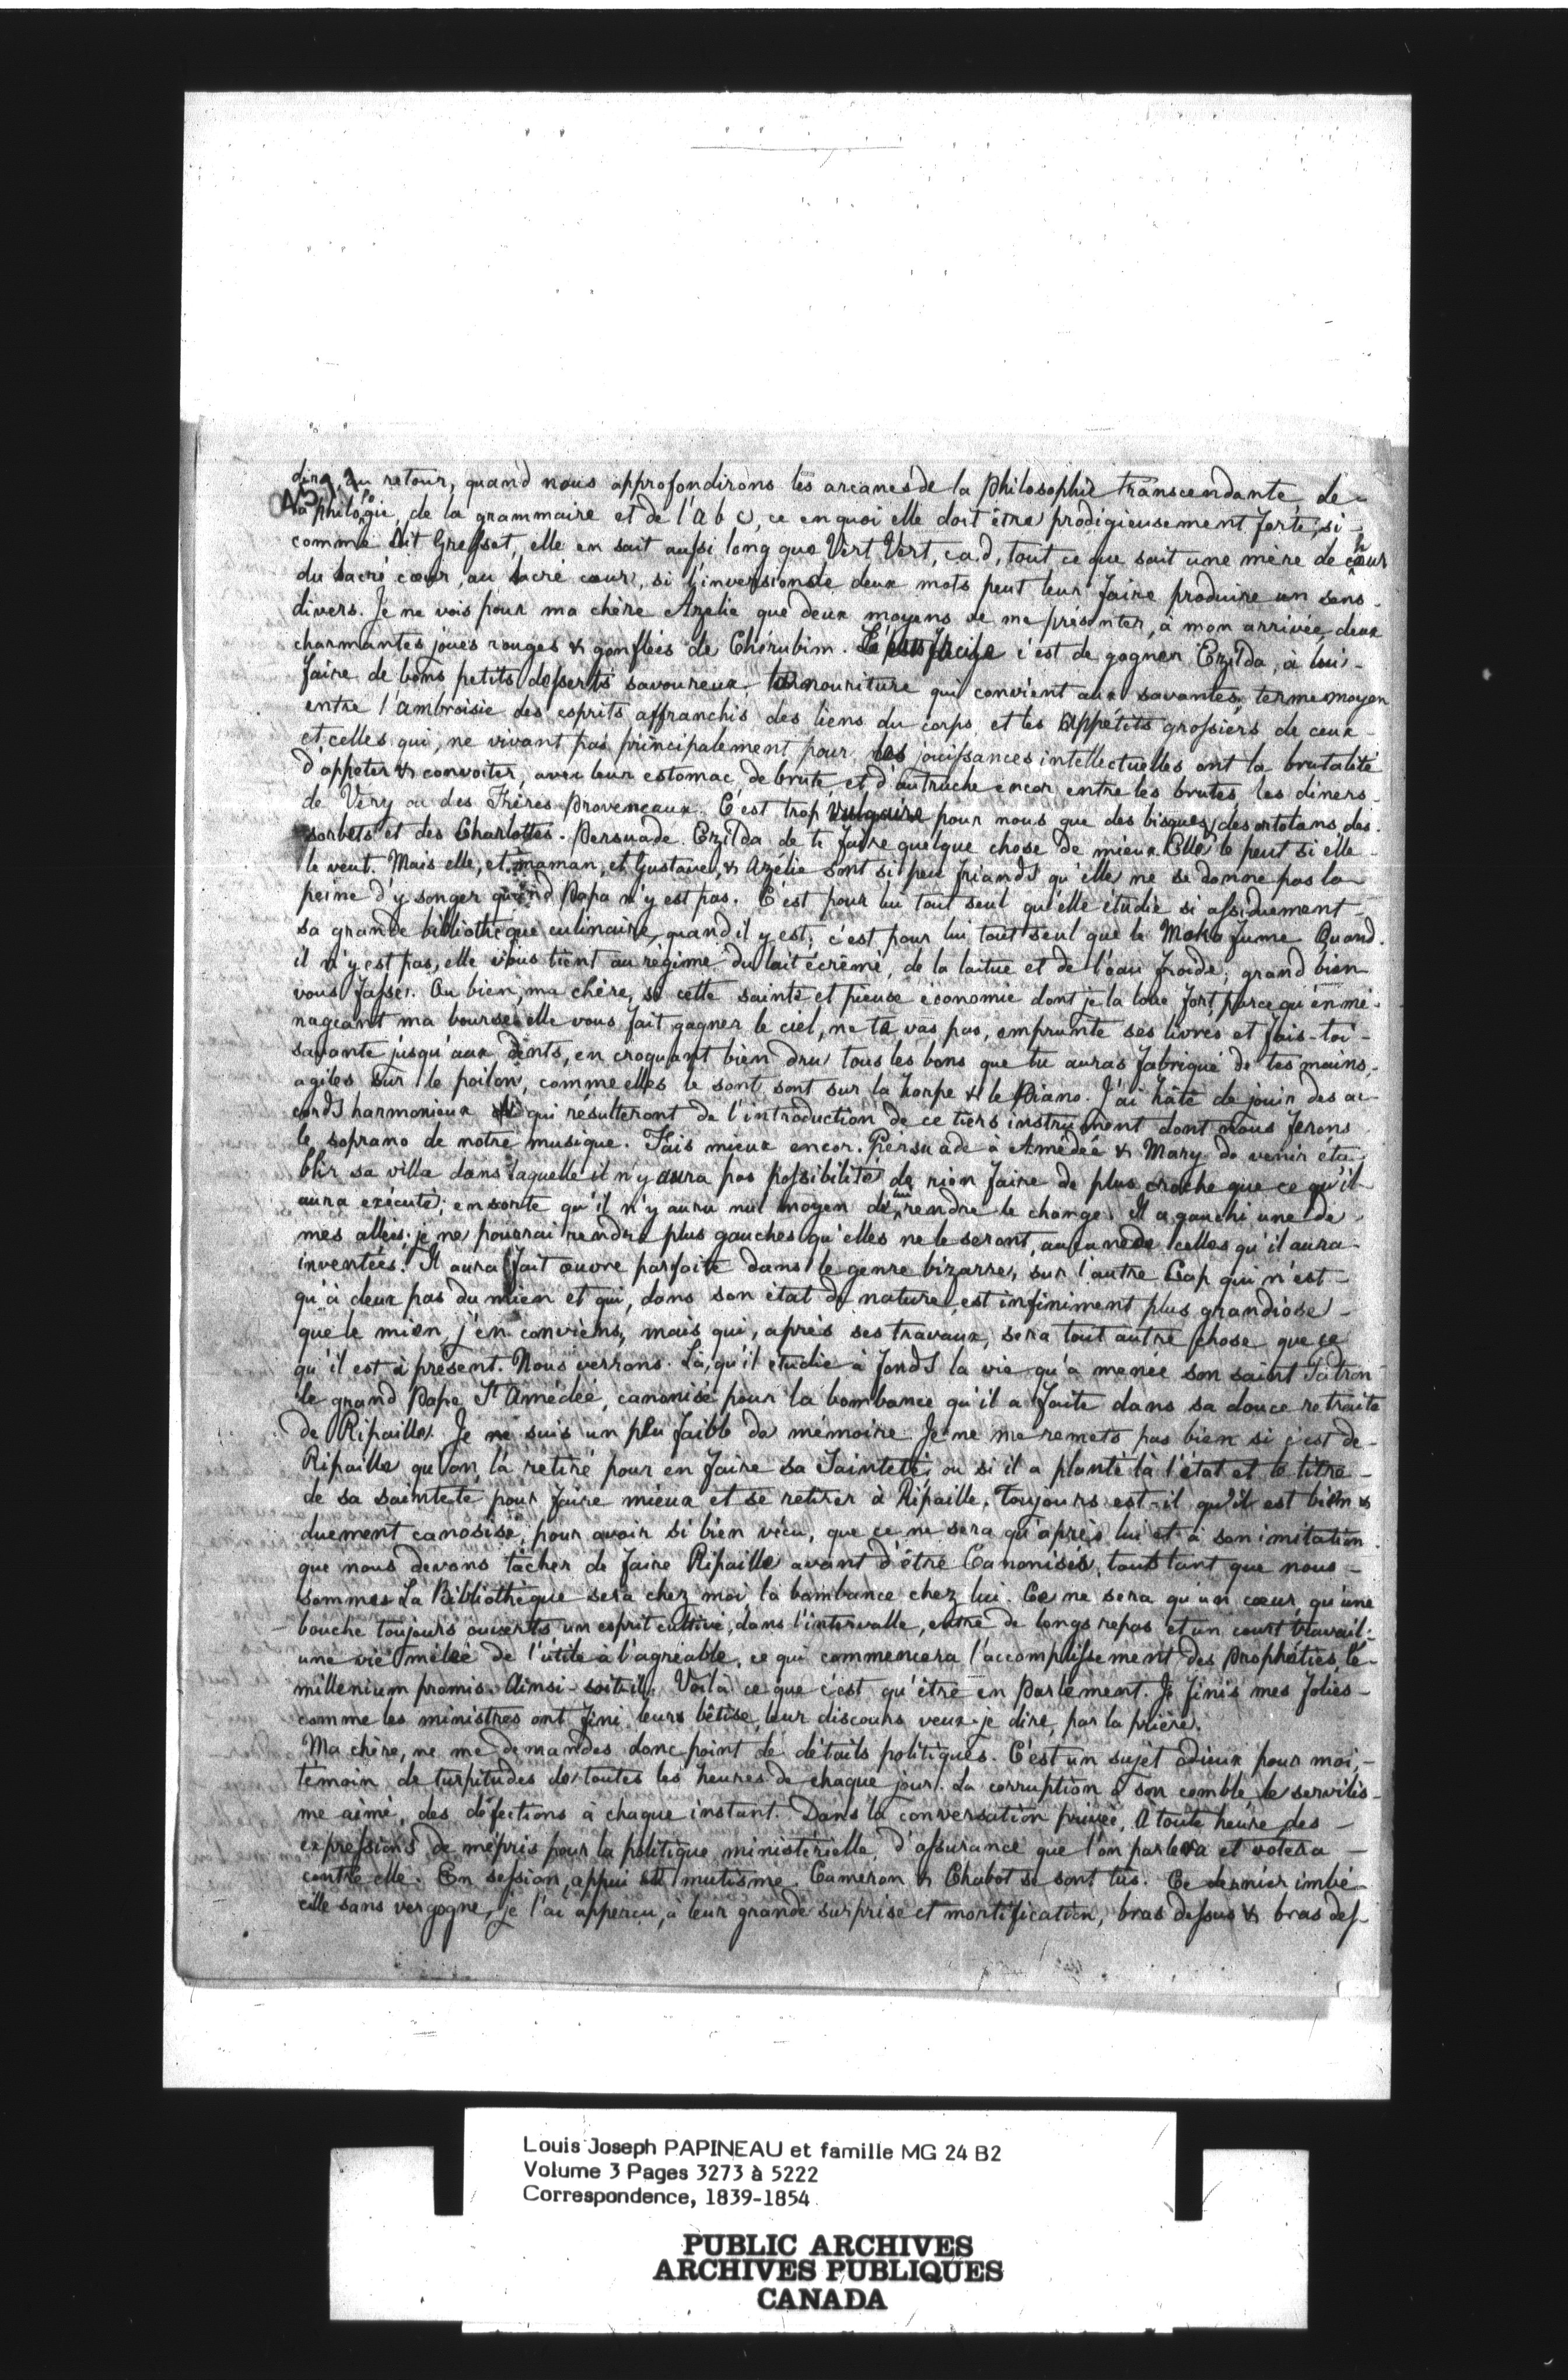 dira, au retour, quand nous approfondirons les arcanes de la philosophie transcendante, de
la philologie, de la grammaire et de l'a b c, ce en quoi elle doit être prodigieusement forte, si
comme dit Gresset, elle en sait aussi long que Vert Vert, c.a.d, tout ce que sait une mère de chœur
du sacré cœur, au sacré cœur, si l'inversion de deux mots peut leur faire produire un sens
divers. Je ne vois pour ma chère Azelie que deux moyens de me présenter, à mon arrivée, deux
charmantes joues rouges & gonflées de Chérubim. Le plus facile c'est de gagner Ezilda, à lui
faire de bons petits desserts savoureux nouriture qui convient aux savantes, terme moyen
entre l'ambroisie des esprits affranchis des liens du corps et les appétits grossiers de ceux
et celles qui, ne vivant pas principalement pour les jouissances intellectuelles ont la brutalité
d'appeter & convoiter, avec leur estomac de brute, et d'autruche encor entre les brutes, les diners
de Véry ou des Frères Provencaux. C'est trop vulgaire pour nous que des bisques, des ortolans, des
sorbets et des Charlottes. Persuade Ezilda de te faire quelque chose de mieux. Elle le peut si elle
le veut. Mais elle, et maman, et Gustave, & Azélie sont si peu friands qu'elle ne se donne pas la
peine d'y songer quand Papa n'y est pas. C'est pour lui tout seul qu'elle étudie si assiduement
sa grande bibliothèque culinaire, quand il y est; c'est pour lui tout seul que le Moka fume. Quand
il n'y est pas, elle vous tient au régime du lait écrêmé, de la laitue et de l'eau froide; grand bien
vous fasse. Ou bien, ma chère, si cette sainte et pieuse économie dont je la loue fort, parcequ'en mé-
nageant ma bourse elle vous fait gagner le ciel, ne te vas pas, emprunte ses livres et fais-toi
savante jusqu'aux dents, en croquant bien dru tous les bons que tu auras fabriqué de tes mains
agiles sur le poilon, comme elles le sont sont sur la harpe & le Piano. J'ai hâte de jouir des ac-
cords harmonieux qui résulteront de l'introduction de ce tiers instrument dont nous ferons
le soprano de notre musique. Fais mieux encor. Persuade à Amédée & Mary de venir éta-
blir sa villa dans laquelle il n'y aura pas possibilité de rien faire de plus croche que ce qu'il
aura exécuté; ensorte qu'il n'y aura nul moyen de lui rendre le change. Il a gauchi une de
mes allées; je ne pourrai rendre plus gauches qu'elles ne le seront, aucune de celles qu'il aura
inventées. Il aura fait œuvre parfaite dans le genre bizarre, sur l'autre Cap qui n'est
qu'à deux pas du mien et qui, dans son état de nature, est infiniment plus grandiose
que le mien, j'en conviens, mais qui, après ses travaux, sera tout autre chose que ce
qu'il est à présent. Nous verrons. Là, qu'il étudie à fonds la vie qu'a menée son saint Patron
le grand Pape St Amédée, canonisé pour la bombance qu'il a faite dans sa douce retraite
de Ripaille. Je ne suis un peu faible de mémoire. Je ne me remets pas bien si c'est de
Ripaille qu'on l'a retiré pour en faire sa Sainteté; ou si il a planté là l'état et le titre
de sa sainteté pour faire mieux et se retirer à Ripaille. Toujours est-il qu'il est bien &
duement canosisé, pour avoir si bien vécu, que ce ne sera qu'après lui et à son imitation
que nous devons tâcher de faire Ripaille avant d'être Canonisés, tous tant que nous
sommes La Bibliothèque sera chez moi la bombance chez lui. Ce ne sera qu'un cœur, qu'une
bouche toujours ouverts un esprit cultivé, dans l'intervalle, entre de longs repas et un court travail:
une vie mêlée de l'utile à l'agréable, ce qui commencera l'accomplissement des Prophéties, le
millenium promis. Ainsi-soit-il. Voilà ce que c'est qu'être en Parlement. Je finis mes folies
comme les ministres ont fini leurs bêtise, leur discours veux-je dire, par la prière.
Ma chère, ne me demandes donc point de détails politiques. C'est un sujet odieux pour moi,
témoin de turpitudes de toutes les heures de chaque jour. La corruption à son comble le servilis-
me aimé, des défections à chaque instant. Dans la conversation privée, A toute heure des
expressions de mépris pour la politique ministérielle, d'assurance que l'on parlera et votera
contre elle. En session, appui et mutisme. Cameron & Chabot se sont tus. Ce dernier imbé-
cille sans vergogne, je l'ai apperçu, à leur grande surprise et mortification, bras dessus & bras des-
Louis Joseph PAPINEAU et famille MG 24 B2
Volume 3 Pages 3273 à 5222
Correspondence, 1839-1854
PUBLIC ARCHIVES
ARCHIVES PUBLIQUES
CANADA